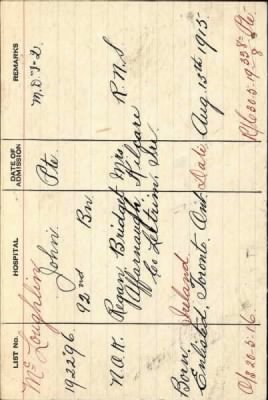 LIST No. HOSPITAL DATE OF ADMISSION REMARKS
McLoughlin John Pte. M.D"3-2.
192296 92nd Bn
N.O.K. Regan, Bridget Mrs R.N.S
Kilgare
Co Leitrim, Ire.
Born, Ireland
Enlisted, Toronto Ont Date Aug. 13th 1915
O/S 20.5.16.